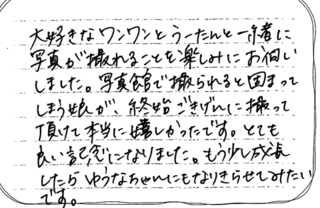 大好きなワンワンとうーたんと一緒に
写真が撮れることを楽しみにお伺い
しました。写真館で撮られると固まって
しまう娘が、終始ごきげんに撮って
頂けて本当に嬉しかったです。とても
良い記念になりました。もう少し成長
したらゆうなちゃんにもなりきらせてみたい
です。